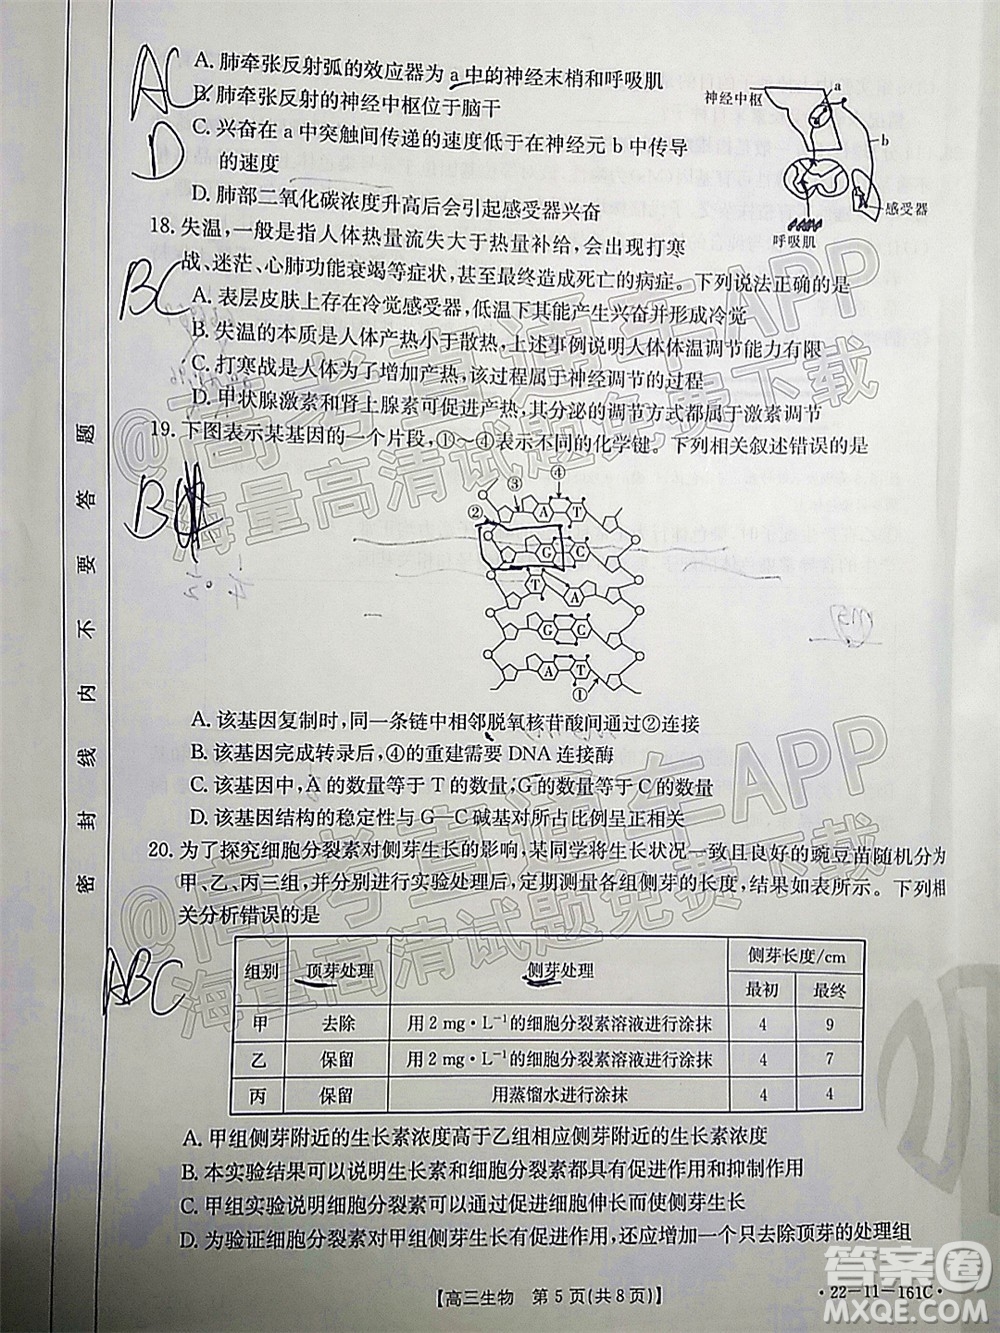 A. 肺牵张反射弧的效应器为 a 中的神经末梢和呼吸肌
B. 肺牵张反射的神经中枢位于脑干
C. 兴奋在 a 中突触间传递的速度低于在神经元 b 中传导
的速度
D. 肺部二氧化碳浓度升高后会引起感受器兴奋
AC
D
神经中枢
a
b
感受器
呼吸肌
18. 失温,一般是指人体热量流失大于热量补给,会出现打寒
战、迷茫、心肺功能衰竭等症状,甚至最终造成死亡的病症。下列说法正确的是
BC
A. 表层皮肤上存在冷觉感受器,低温下其能产生兴奋并形成冷觉
B. 失温的本质是人体产热小于散热,上述事例说明人体体温调节能力有限
C. 打寒战是人体为了增加产热,该过程属于神经调节的过程
D. 甲状腺激素和肾上腺素可促进产热,其分泌的调节方式都属于激素调节
19. 下图表示某基因的一个片段,①~④表示不同的化学键。下列相关叙述错误的是
B
④
③
②
A T
G C
T A
G C
A T
①
A. 该基因复制时,同一条链中相邻脱氧核苷酸间通过②连接
B. 该基因完成转录后,④的重建需要 DNA 连接酶
C. 该基因中,A 的数量等于 T 的数量,G 的数量等于 C 的数量
D. 该基因结构的稳定性与 G—C 碱基对所占比例呈正相关
20. 为了探究细胞分裂素对侧芽生长的影响,某同学将生长状况一致且良好的豌豆苗随机分为
甲、乙、丙三组,并分别进行实验处理后,定期测量各组侧芽的长度,结果如表所示。下列相
关分析错误的是
ABC
组别 顶芽处理 侧芽处理 侧芽长度/cm
最初 最终
甲 去除 用 2 mg·L⁻¹的细胞分裂素溶液进行涂抹 4 9
乙 保留 用 2 mg·L⁻¹的细胞分裂素溶液进行涂抹 4 7
丙 保留 用蒸馏水进行涂抹 4 4
A. 甲组侧芽附近的生长素浓度高于乙组相应侧芽附近的生长素浓度
B. 本实验结果可以说明生长素和细胞分裂素都具有促进作用和抑制作用
C. 甲组实验说明细胞分裂素可以通过促进细胞伸长而使侧芽生长
D. 为验证细胞分裂素对甲组侧芽生长有促进作用,还应增加一个只去除顶芽的处理组
【高三生物 第 5 页(共 8 页)】
·22-11-161C·
密 封 线 内 不 要 答 题
@高考直通车APP
海量高清试题免费下载
@高考直通车APP
海量高清试题免费下载
答案圈
MXQE.COM